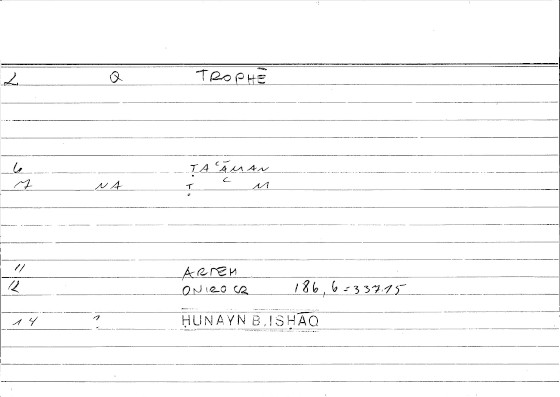 L Q TROPHĒ
6 ṬAʿĀMAN
7 NA Ṭ ʿ M
11 ARTEM
12 ONIROCR 186,6=337.15
14 ? ḤUNAYN B. ISḤĀQ